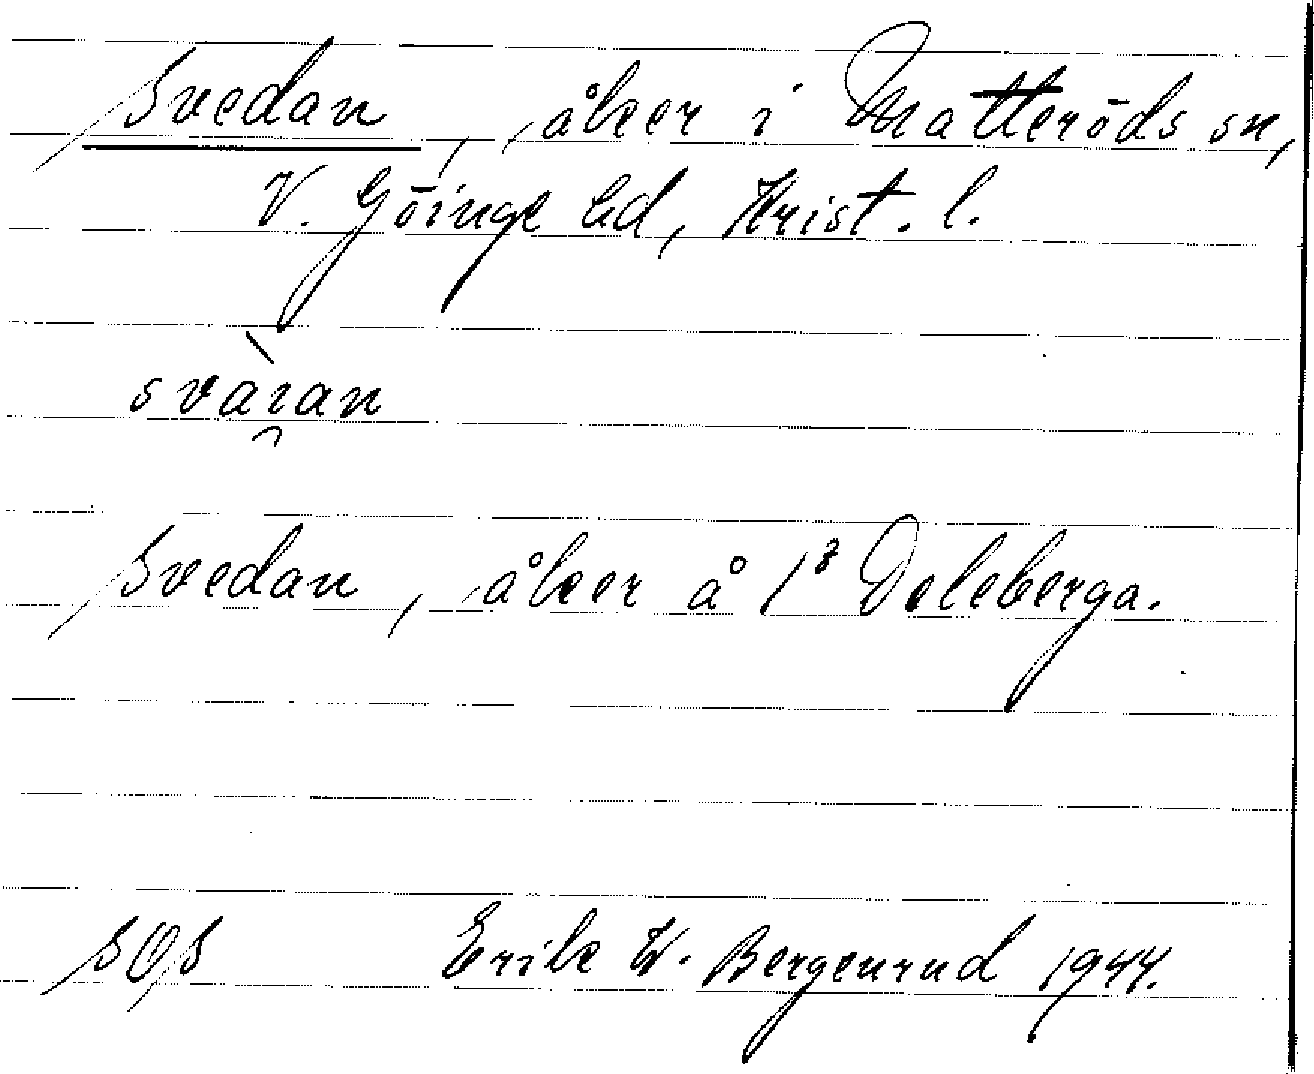 Svedan, åker i Matteröds sn,
V. Göinge hd, Krist. l.
svàɪ̯an
Svedan, åker å 1⁸ Deleberga.
SOS Erik W. Bergenrud 1944.